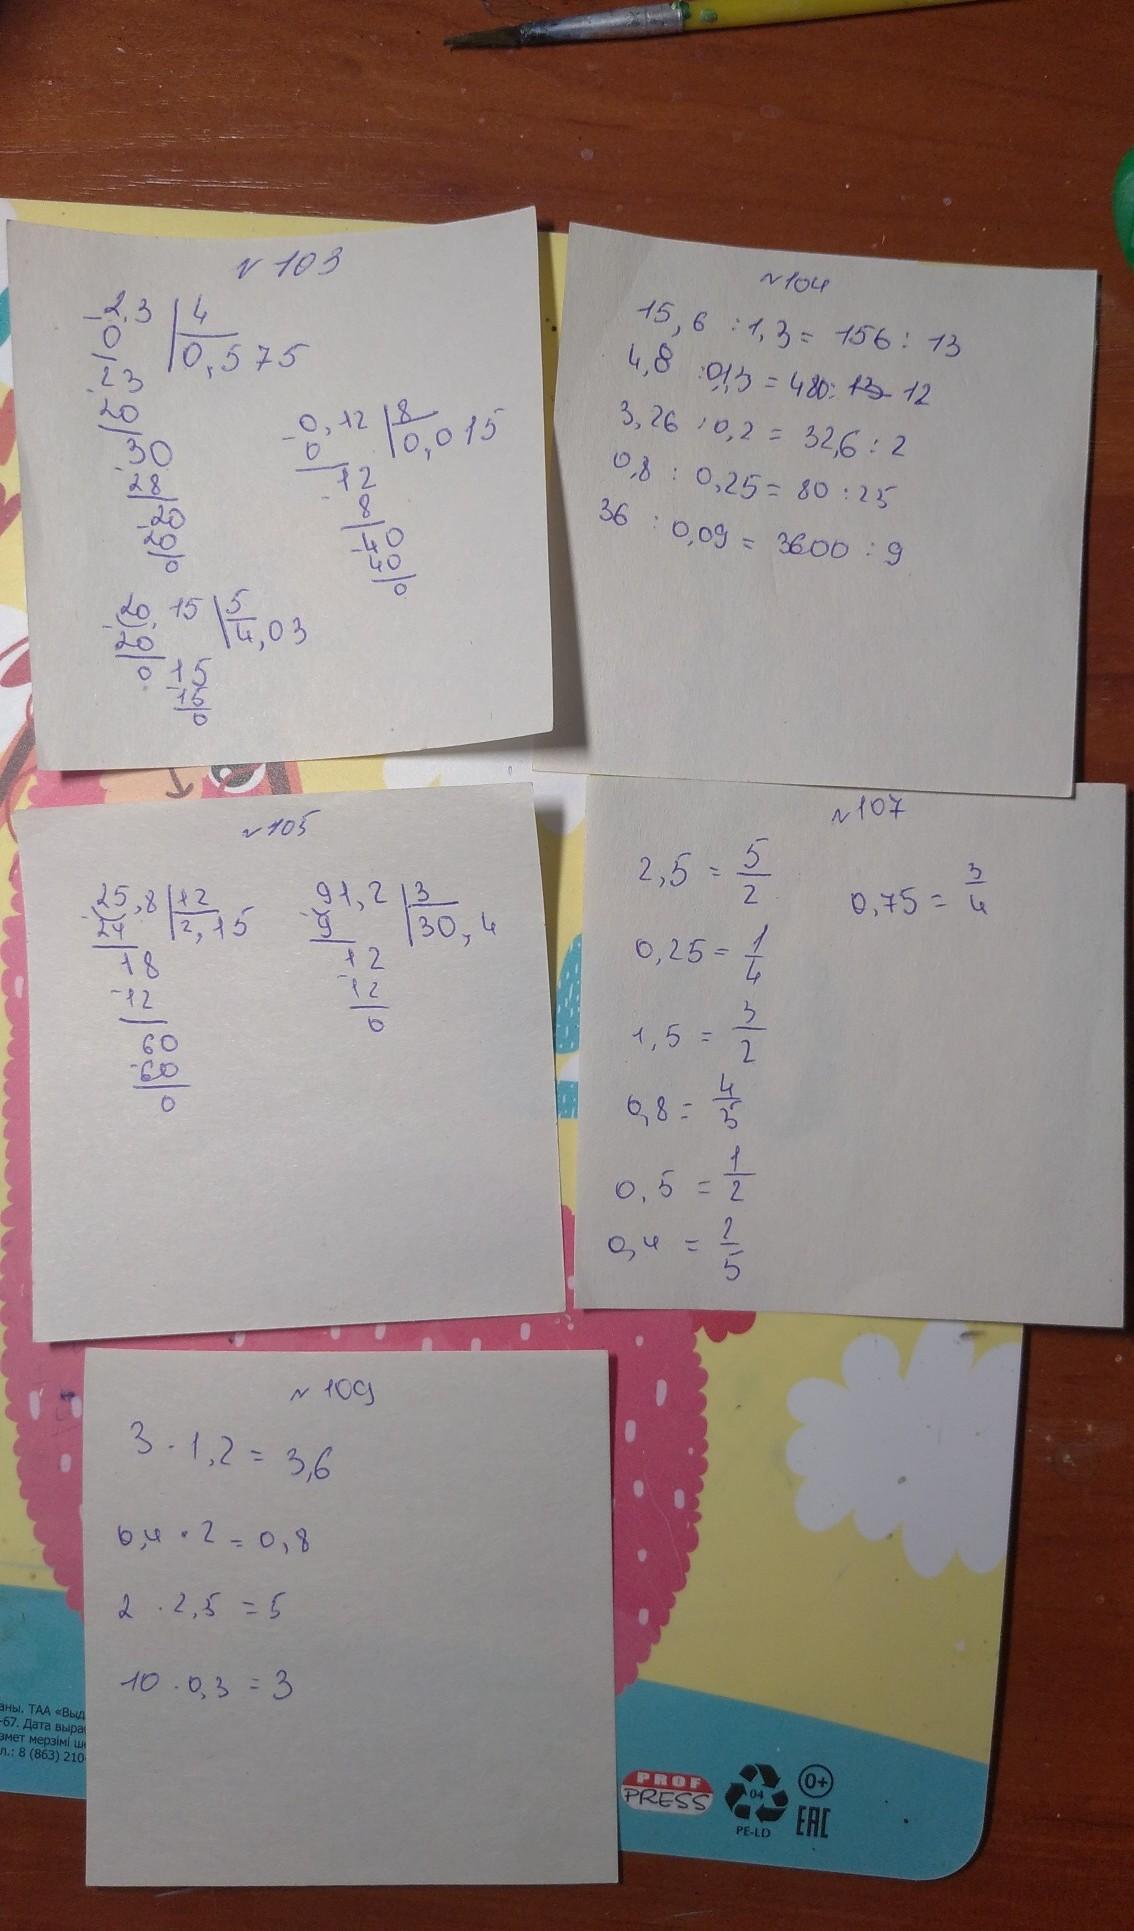 № 103
2,3 | 4
0 | 0,575
23
20
30
28
20
20
0
0,12 | 8
0 | 0,015
12
8
40
40
0
20,15 | 5
20 | 4,03
0 15
15
0
№ 104
15,6 : 1,3 = 156 : 13
4,8 : = 480: 12
3,26 : 0,2 = 32,6 : 2
0,8 : 0,25 = 80 : 25
36 : 0,09 = 3600 : 9
№ 105
25,8 | 12
24 | 2,15
18
12
60
60
0
91,2 | 3
9 | 30,4
12
12
0
№ 107
2,5 = 5/2
0,25 = 1/4
1,5 = 3/2
0,8 = 4/5
0,5 = 1/2
0,4 = 2/5
0,75 = 3/4
№ 109
3 · 1,2 = 3,6
0,4 · 2 = 0,8
2 · 2,5 = 5
10 · 0,3 = 3
аны. ТАА «Выд
-67. Дата выра
змет мерзімі ш
л.: 8 (863) 210-
PROF
PRESS
04
PE-LD
0+
EAC